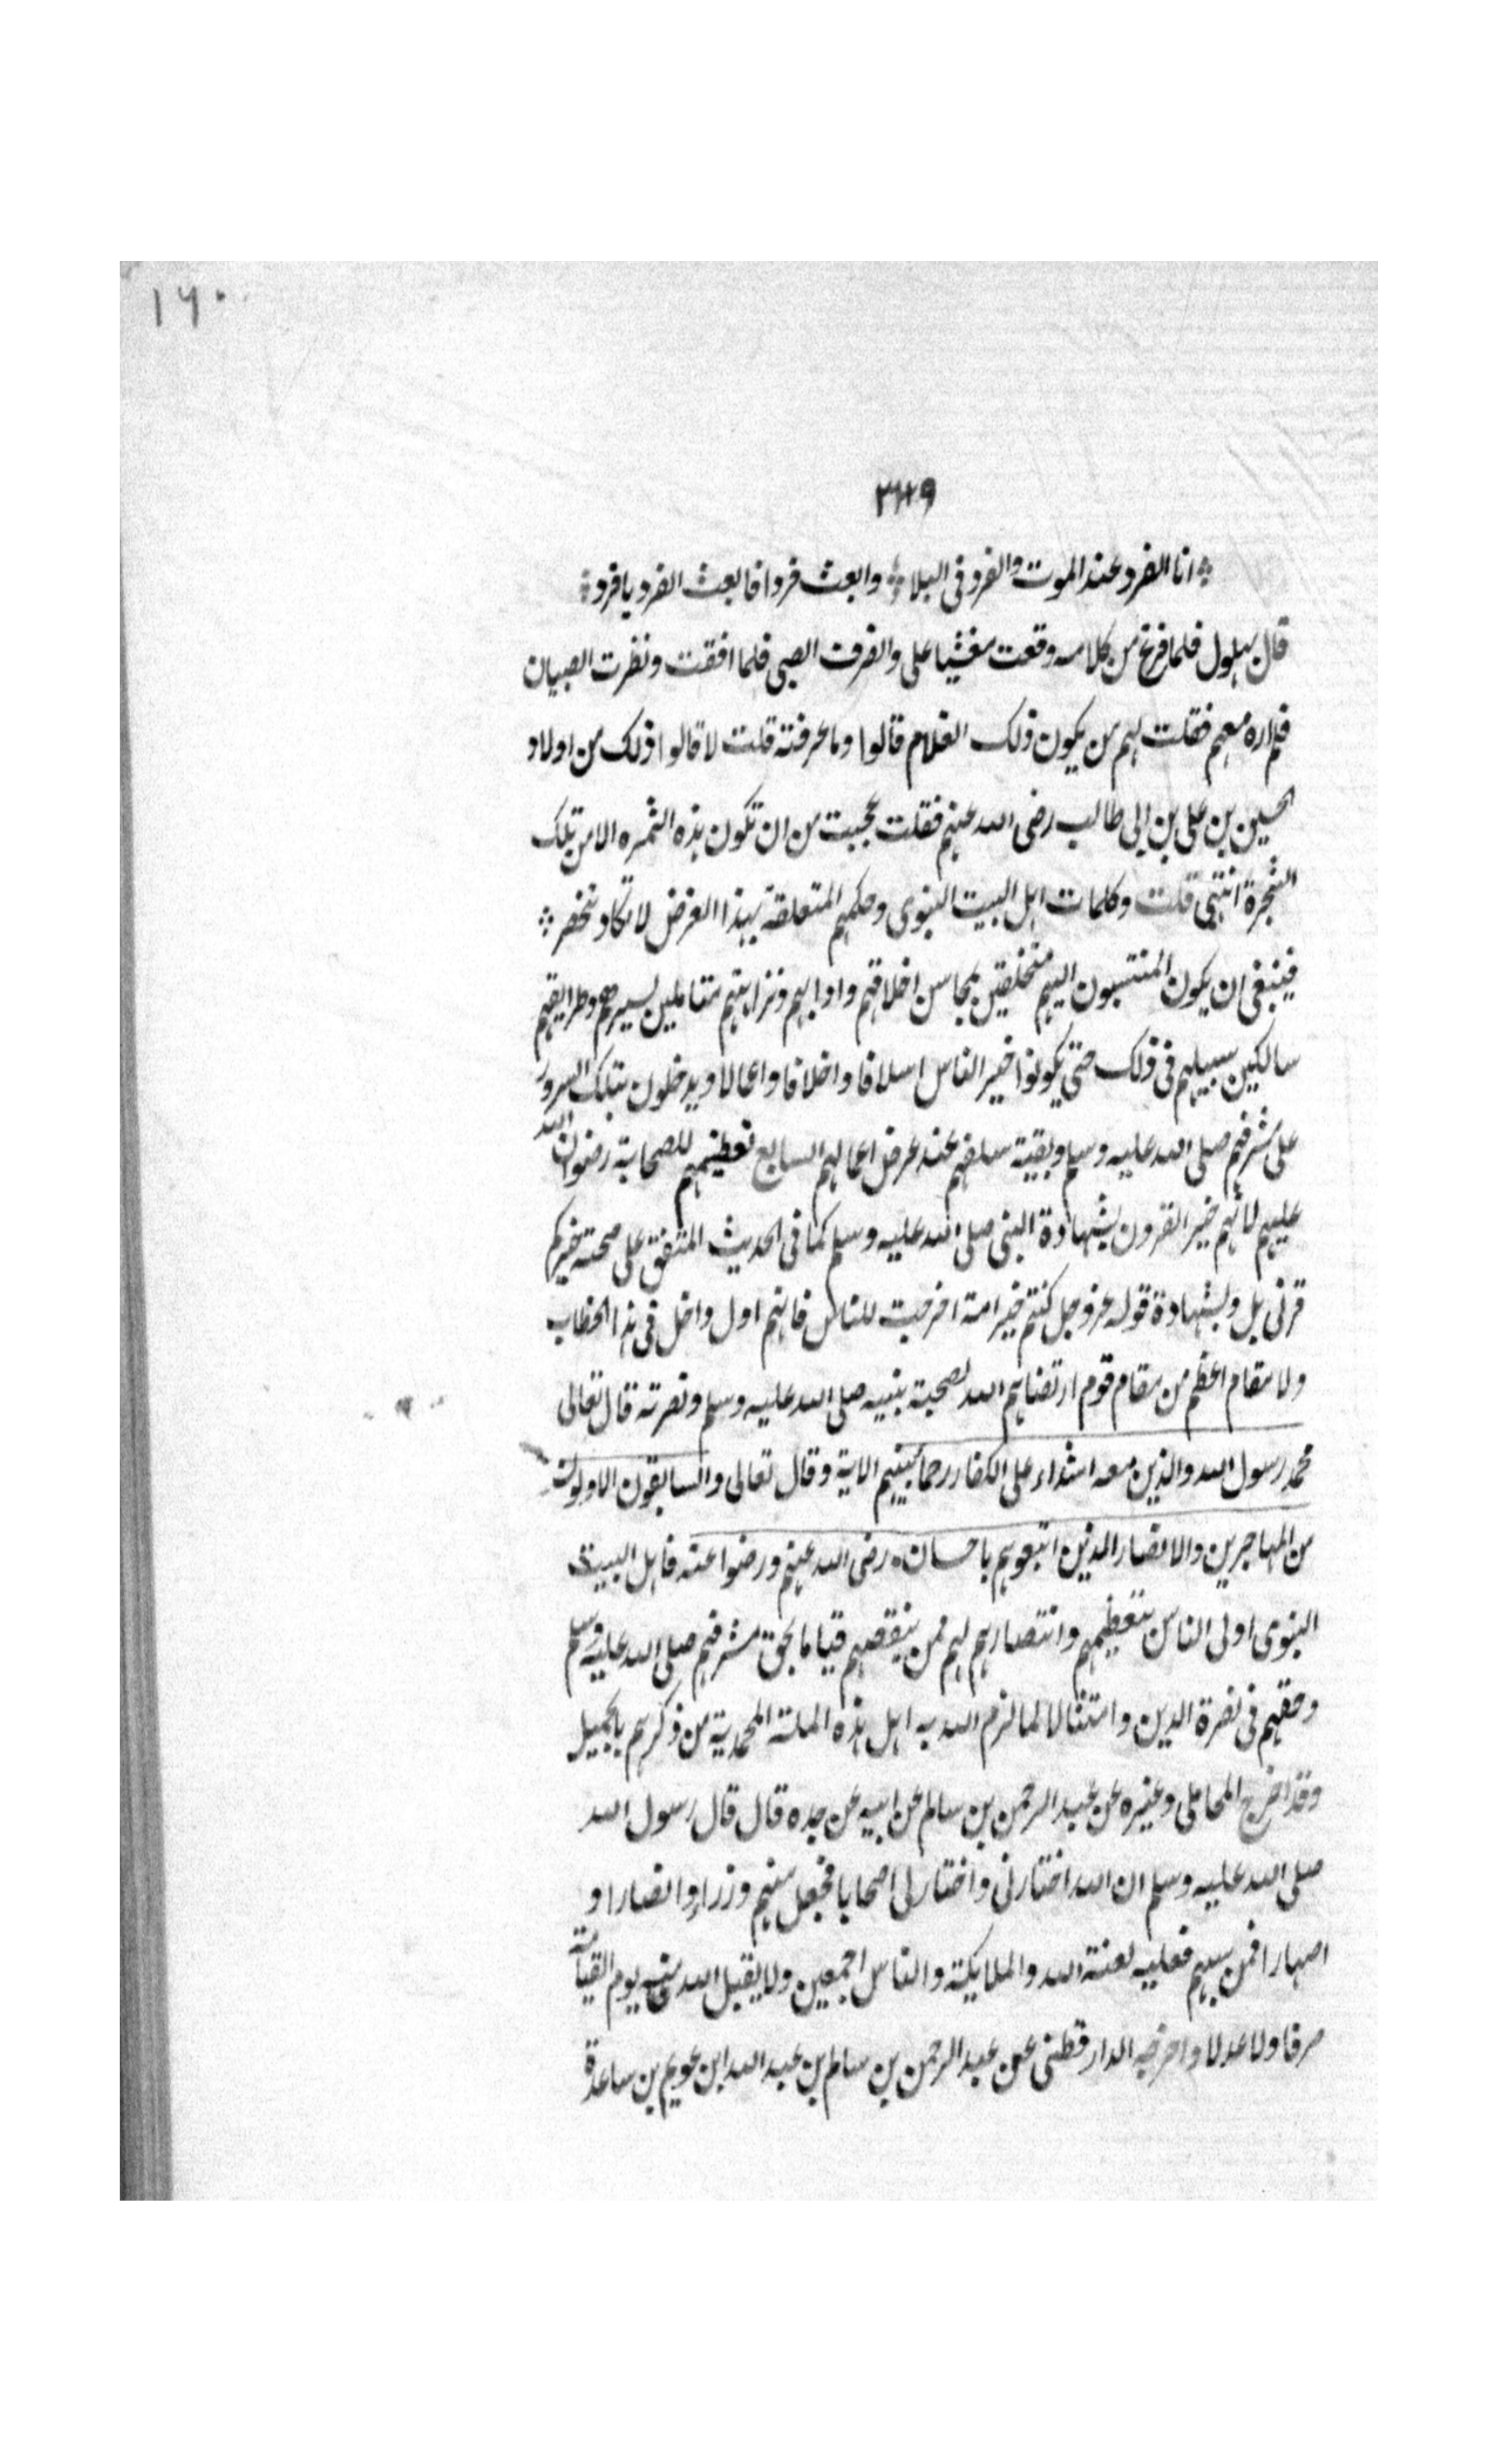 ١٦٠
٣١٩
انا الفرد عند الموت والفرد فى البلا وابعث فردا فابعث الفرد يا فرد
قال بهلول فلما فرغ من كلامه وقعت مغشيا على وانصرف الصبى فلما افقت ونظرت الصبيان
فلم اره معهم فقلت لهم من يكون ذلك الغلام قالوا وما عرفته قلت لا قالوا ذلك من اولاد
الحسين بن على بن ابى طالب رضى الله عنهم فقلت عجبت من ان تكون هذه الثمره الا من تلك
الشجرة انتهى قلت وكلمات اهل البيت النبوى وحكمهم المتعلقة بهذا الغرض لا تكاد تنحصر
فينبغى ان يكون المنتسبون اليهم متخلقين بمحاسن اخلاقهم وادابهم ونزاهتهم متاملين لسيرهم وطرايقهم
سالكين سبيلهم فى ذلك حتى يكونوا خير الناس اسلافا واخلاقا واعمالا ويدخلون بتلك السرور
على مشرفهم صلى الله عليه وسلم وبقية سلفهم عند عرض اعمالهم السابع تعظيمهم للصحابة رضوان الله
عليهم لانهم خير القرون بشهادة النبى صلى الله عليه وسلم كما فى الحديث المتفق على صحته خيركم
قرنى بل وبشهادة قوله عز وجل كنتم خير امة اخرجت للناس فانهم اول داخل فى هذا الخطاب
ولا مقام اعظم من مقام قوم ارتضاهم الله لصحبة نبيه صلى الله عليه وسلم ونصرته قال تعالى
محمد رسول الله والذين معه اشداء على الكفار رحما بينهم الاية وقال تعالى والسابقون الاولون
من المهاجرين والانصار الذين اتبعوهم باحسان رضى الله عنهم ورضوا عنه فاهل البيت
النبوى اولى الناس بتعظيمهم وانتصارهم لهم ممن ينقصهم قياما بحق مشرفهم صلى الله عليه وسلم
وحقهم فى نصرة الدين وامتثالا لما لزم الله به اهل هذه الملة المحمدية من ذكرهم بالجميل
وقد اخرج المحاملى وغيره عن عبد الرحمن بن سالم عن ابيه عن جده قال قال رسول الله
صلى الله عليه وسلم ان الله اختارنى واختار لى اصحابا فجعل منهم وزراء وانصارا و
اصهارا فمن سبهم فعليه لعنة الله والملايكة والناس اجمعين ولا يقبل الله منه يوم القيامة
صرفا ولا عدلا واخرجه الدارقطنى عن عبد الرحمن بن سالم بن عبد الله ابن عويم بن ساعدة